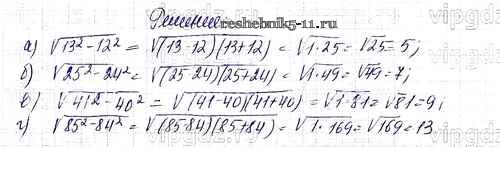 Решение
reshebnik5-11.ru
а) √(13² - 12²) = √((13-12)(13+12)) = √(1·25) = √25 = 5;
б) √(25² - 24²) = √((25-24)(25+24)) = √(1·49) = √49 = 7;
в) √(41² - 40²) = √((41-40)(41+40)) = √(1·81) = √81 = 9;
г) √(85² - 84²) = √((85-84)(85+84)) = √(1·169) = √169 = 13